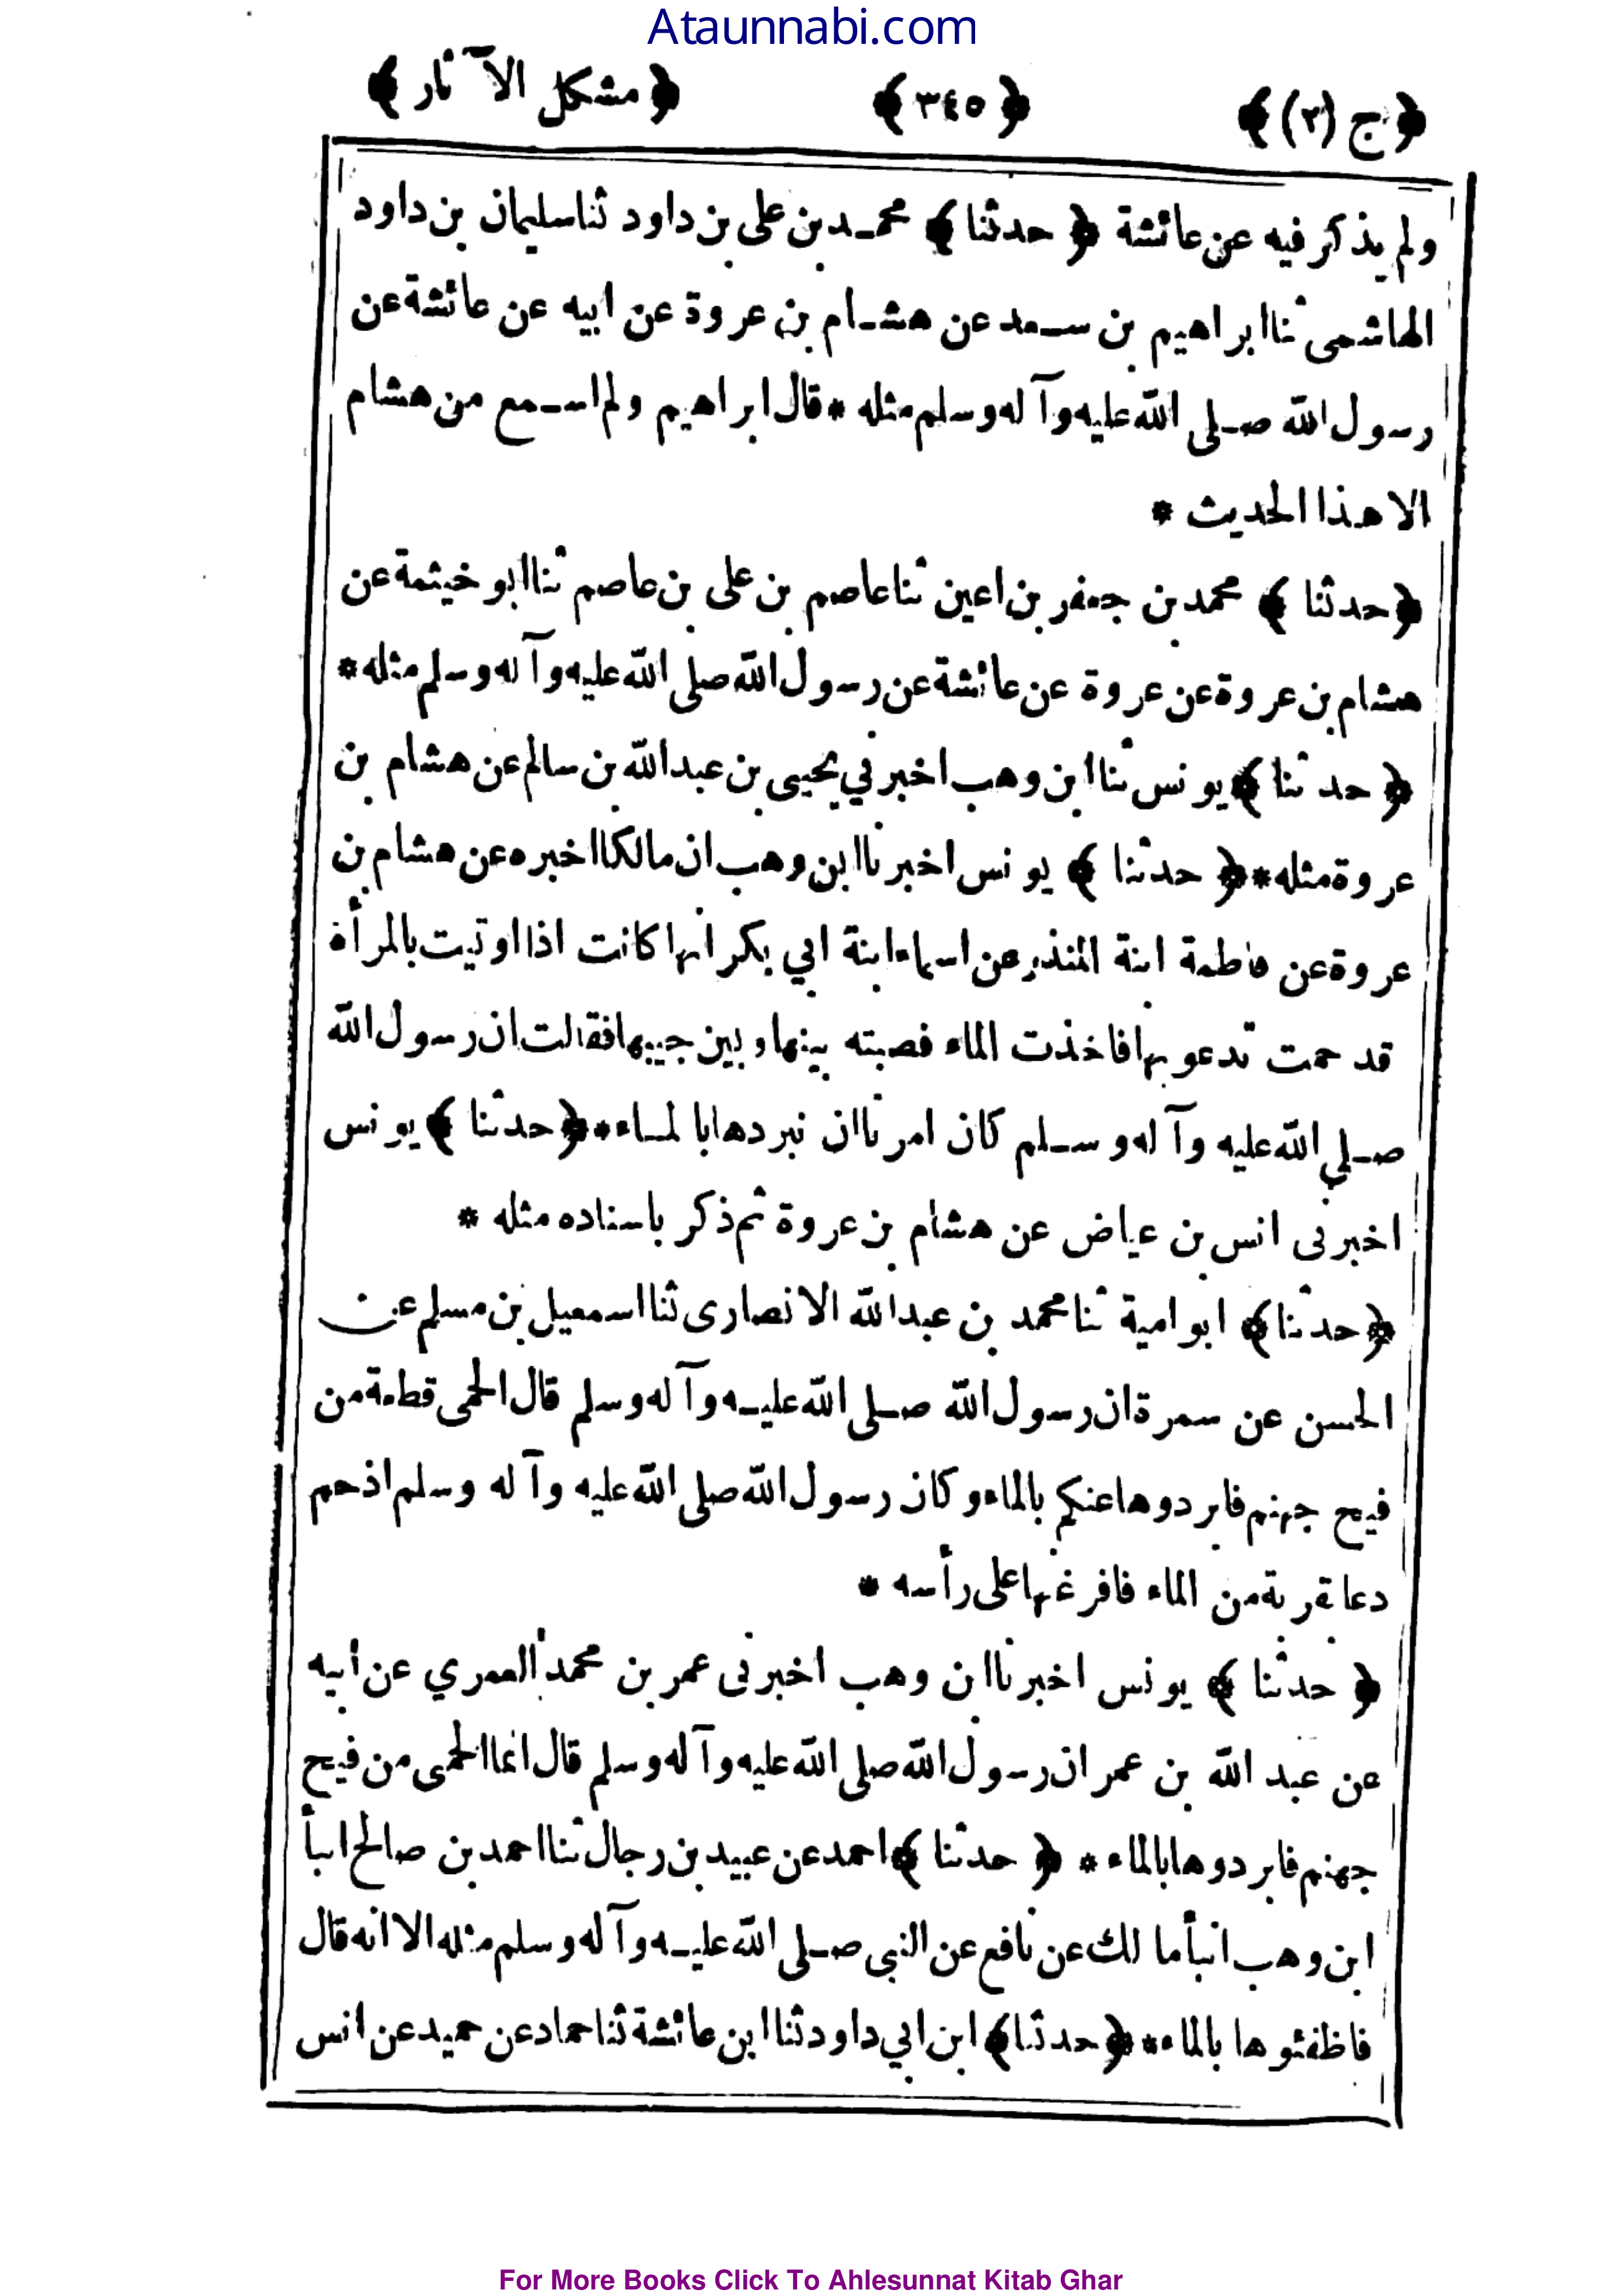 Ataunnabi.com
﴿ ج (٢) ﴾ ﴿ ٣٤٥ ﴾ ﴿ مشكل الآثار ﴾
ولم يذكر فيه عن عائشة ﴿ حدثنا ﴾ محمد بن على بن داود ثنا سليمان بن داود
الهاشمى ثنا ابراهيم بن سعد عن هشام بن عروة عن ابيه عن عائشة عن
رسول الله صلى الله عليه وآله وسلم مثله * قال ابراهيم ولم اسمع من هشام
الا هذا الحديث *
﴿ حدثنا ﴾ محمد بن جعفر بن اعين ثنا عاصم بن على بن عاصم ثنا ابو خيثمة عن
هشام بن عروة عن عروة عن عائشة عن رسول الله صلى الله عليه وآله وسلم مثله *
﴿ حدثنا ﴾ يونس ثنا ابن وهب اخبرني يحيى بن عبد الله بن سالم عن هشام بن
عروة مثله * ﴿ حدثنا ﴾ يونس اخبرنا ابن وهب ان مالكا اخبره عن هشام بن
عروة عن فاطمة ابنة المنذر عن اسماء ابنة ابي بكر انها كانت اذا اوتيت بالمرأة
قد حمت تدعو بها فاخذت الماء فصبته بينها وبين جيبها فقالت ان رسول الله
صلي الله عليه وآله وسلم كان امرنا ان نبردها بالماء * ﴿ حدثنا ﴾ يونس
اخبرنى انس بن عياض عن هشام بن عروة ثم ذكر باسناده مثله *
﴿ حدثنا ﴾ ابو امية ثنا محمد بن عبد الله الانصارى ثنا اسمعيل بن مسلم عن
الحسن عن سمرة ان رسول الله صلى الله عليه وآله وسلم قال الحمى قطعة من
فيح جهنم فابردوها عنكم بالماء وكان رسول الله صلى الله عليه وآله وسلم اذ حم
دعا قربة من الماء فافرغها على رأسه *
﴿ حدثنا ﴾ يونس اخبرنا ابن وهب اخبرنى عمر بن محمد العمري عن أبيه
عن عبد الله بن عمر ان رسول الله صلى الله عليه وآله وسلم قال انما الحمى من فيح
جهنم فابردوها بالماء * ﴿ حدثنا ﴾ احمد عن عبيد بن رجال ثنا احمد بن صالح انبأ
ابن وهب انبأ مالك عن نافع عن النبى صلى الله عليه وآله وسلم مثله الا انه قال
فاظفئوها بالماء * ﴿ حدثنا ﴾ ابن ابي داود ثنا ابن عائشة ثنا حماد عن حميد عن انس
For More Books Click To Ahlesunnat Kitab Ghar